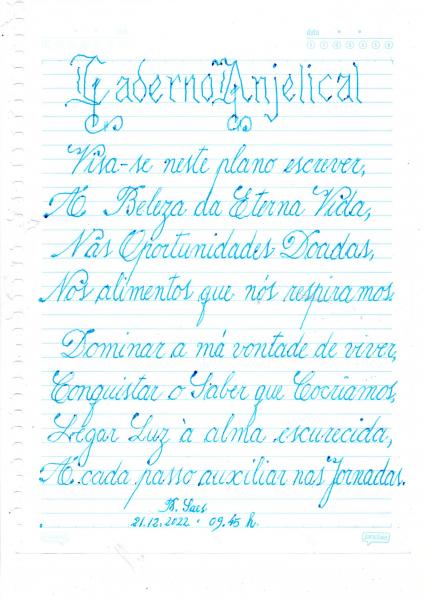 data
Caderno Anjelical
Visa-se neste plano escrever,
A Beleza da Eterna Vida,
Nas Oportunidades Doadas,
Nos alimentos que nós respiramos.
Dominar a má vontade de viver,
Conquistar o Saber que Cocriamos,
Legar Luz à alma escurecida,
A cada passo auxiliar nas Jornadas.
21.12.2022 · 09.45 h.